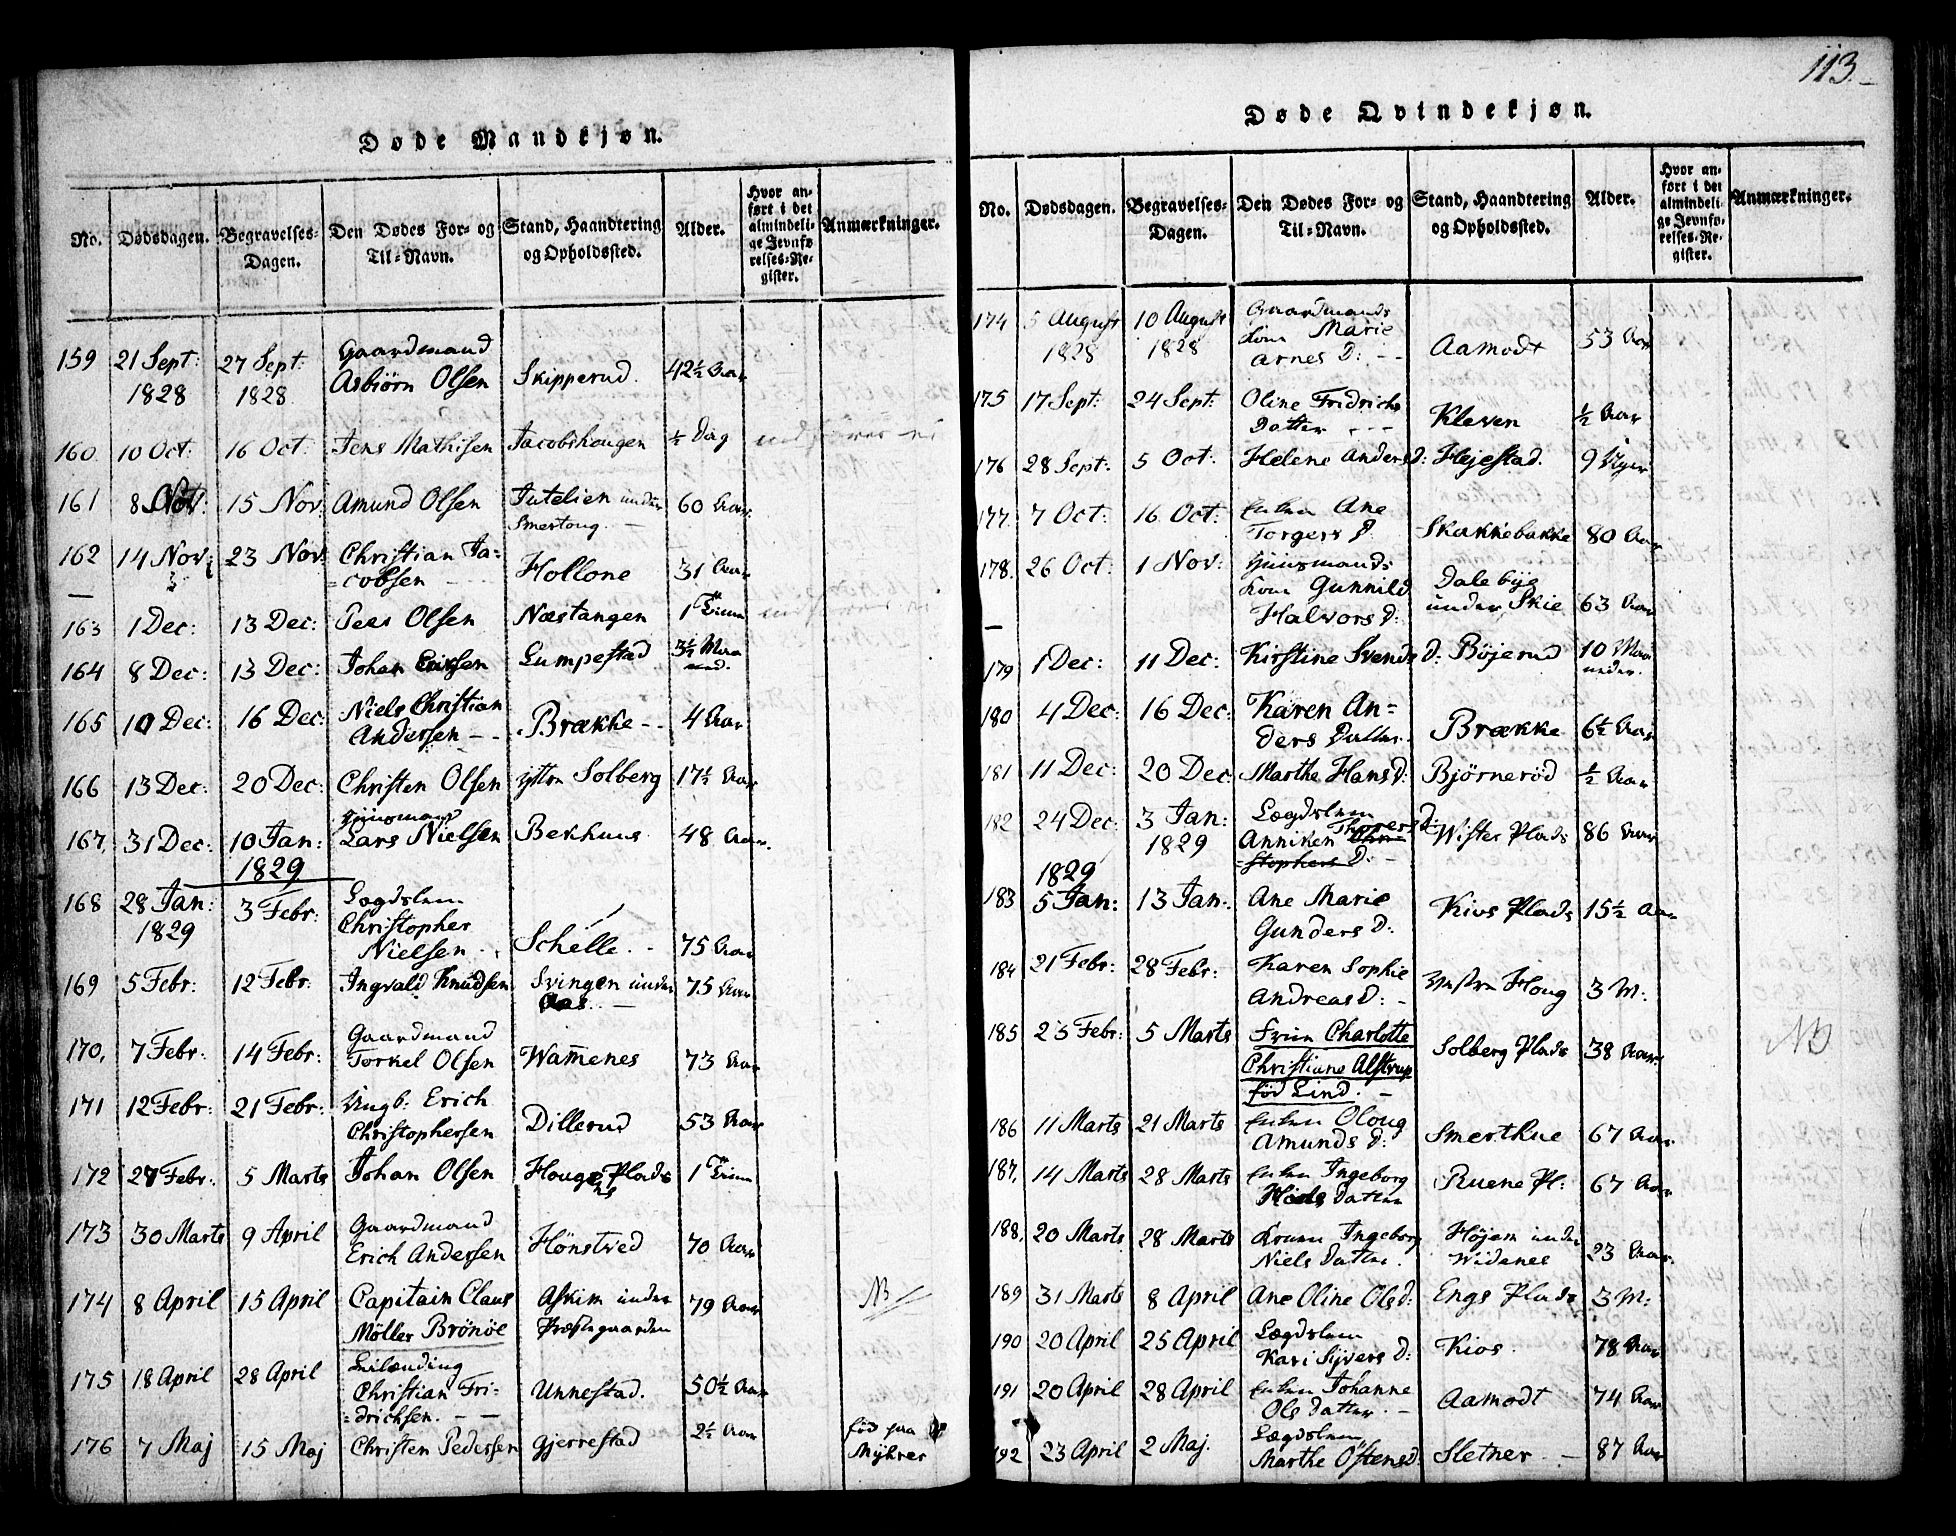 113.
Døde Mandkjøn.
No. Dødsdagen. Begravelses-Dagen. Den Dødes For- og Til-Navn. Stand, Haandtering og Opholdssted. Alder. Hvor anført i det almindelige Jevnførelses-Register. Anmærkninger.
159 21 Sept: 27 Sept: Gaardmand
1828 1828 Asbiörn Olsen Skipperud. 42½ Aar
160. 10 Oct: 16 Oct: Jens Mathisen Jacobshougen ½ Dag
161 8 Nov: 15 Nov: Amund Olsen Jutelien under 60 Aar
Smertoug.
162 14 Nov: 23 Nov: Christian Ja=
=cobsen Hollone 31 Aar
163 1 Dec: 13 Dec: Peer Olsen Næstangen 1 Time
164 8 Dec: 13 Dec: Johan Eriksen Lumpestad 3½ Maa
ned.
165 10 Dec: 16 Dec: Niels Christian
Andersen Brække 4 Aar
166 13 Dec: 20 Dec: Christen Olsen yttre Solberg 17½ Aar
167. 31 Dec: 10 Jan: Huusmand
1829 Lars Nielsen Bekhuus 48 Aar
168 28 Jan: 3 Febr: Lægdslem
1829 Christopher
Nielsen Schelle 75 Aar
169 5 Febr: 12 Febr: Ingvald Knudsen Svingen under 75 Aar
Aas.
170. 7 Febr: 14 Febr: Gaardmand
Torkel Olsen Wamenes 73 Aar
171 12 Febr: 21 Febr: Ungk: Erich
Christophersen Dillerud 53 Aar
172 27 Febr: 5 Marts Johan Olsen Houge Plads 1 Time
173 30 Marts 9 April Gaardmand
Erich Andersen Hönstved 70 Aar
174 8 April 15 April Capitain Claus Askim under 79 Aar NB
Møller Brönöe Præstegaarden
175 18 April 28 April Leilænding
Christian Fri=
=drichsen. Unnestad. 50½ Aar
176 7 Maj 15 Maj Christen Pedersen Gjerrestad 2½ Aar fød paa
Myhrer
Døde Qvindekjøn.
No. Dødsdagen. Begravelses-Dagen. Den Dødes For- og Til-Navn. Stand, Haandtering og Opholdssted. Alder. Hvor anført i det almindelige Jevnførelses-Register. Anmærkninger.
174 5 August 10 August Gaardmands
1828 1828 Kone Marie
Arnes D: Aamodt 53 Aar
175 17 Sept: 24 Sept: Oline Fridrichs
Datter Kleven ½ Aar
176 28 Sept: 5 Oct: Helene Anders D: Hejestad. 9 Uger
177. 7 Oct: 16 Oct: Enken Ane
Torgers D. Skakkebakke 80 Aar
178. 26 Oct: 1 Nov: Huusmands
Kone Gunnild Dalebye
Halvors D: under Skie 63 Aar
179 1 Dec: 11 Dec: Kirstine Svends D: Böjerud 10 Maa
neder.
180 4 Dec: 16 Dec: Karen An=
ders Datter. Brække 6½ Aar
181 11 Dec: 20 Dec: Marthe Hans D: Bjørnerød ½ Aar
182 24 Dec: 3 Jan: Lægdslem
1829 Anniken Thorers D: Wister Plads 86 Aar
Chri=
=stophers D:
1829
183 5 Jan: 13 Jan: Ane Marie
Gunders D: Kios Plads 15½ Aar
184 21 Febr: 28 Febr: Karen Sophie
Andreas D: Houg 3 M:
185 23 Febr: 5 Marts Fruen Charlotte
Christiane Alstrup Solberg Plads 38 Aar NB
fød Lind.
186 11 Marts 21 Marts Enken Oloug
Amunds D: Smerthue 67 Aar
187. 14 Marts 28 Marts Enken Ingeborg
Datter Ruene Pl: 67 Aar
188. 20 Marts 28 Marts Konen Ingeborg Höjem under
Niels Datter. Widenes 23 Aar
189 31 Marts 8 April Ane Oline Ols D: Engs Plads 3 M:
190 20 April 25 April Lægdslem
Kari Sijvers D: Kios 78 Aar
191 20 April 28 April Enken Johanne
Ols Datter Aamodt 74 Aar
192 23 April 2 Maj. Lægdslem
Marthe Östens D: Sletner 87 Aar